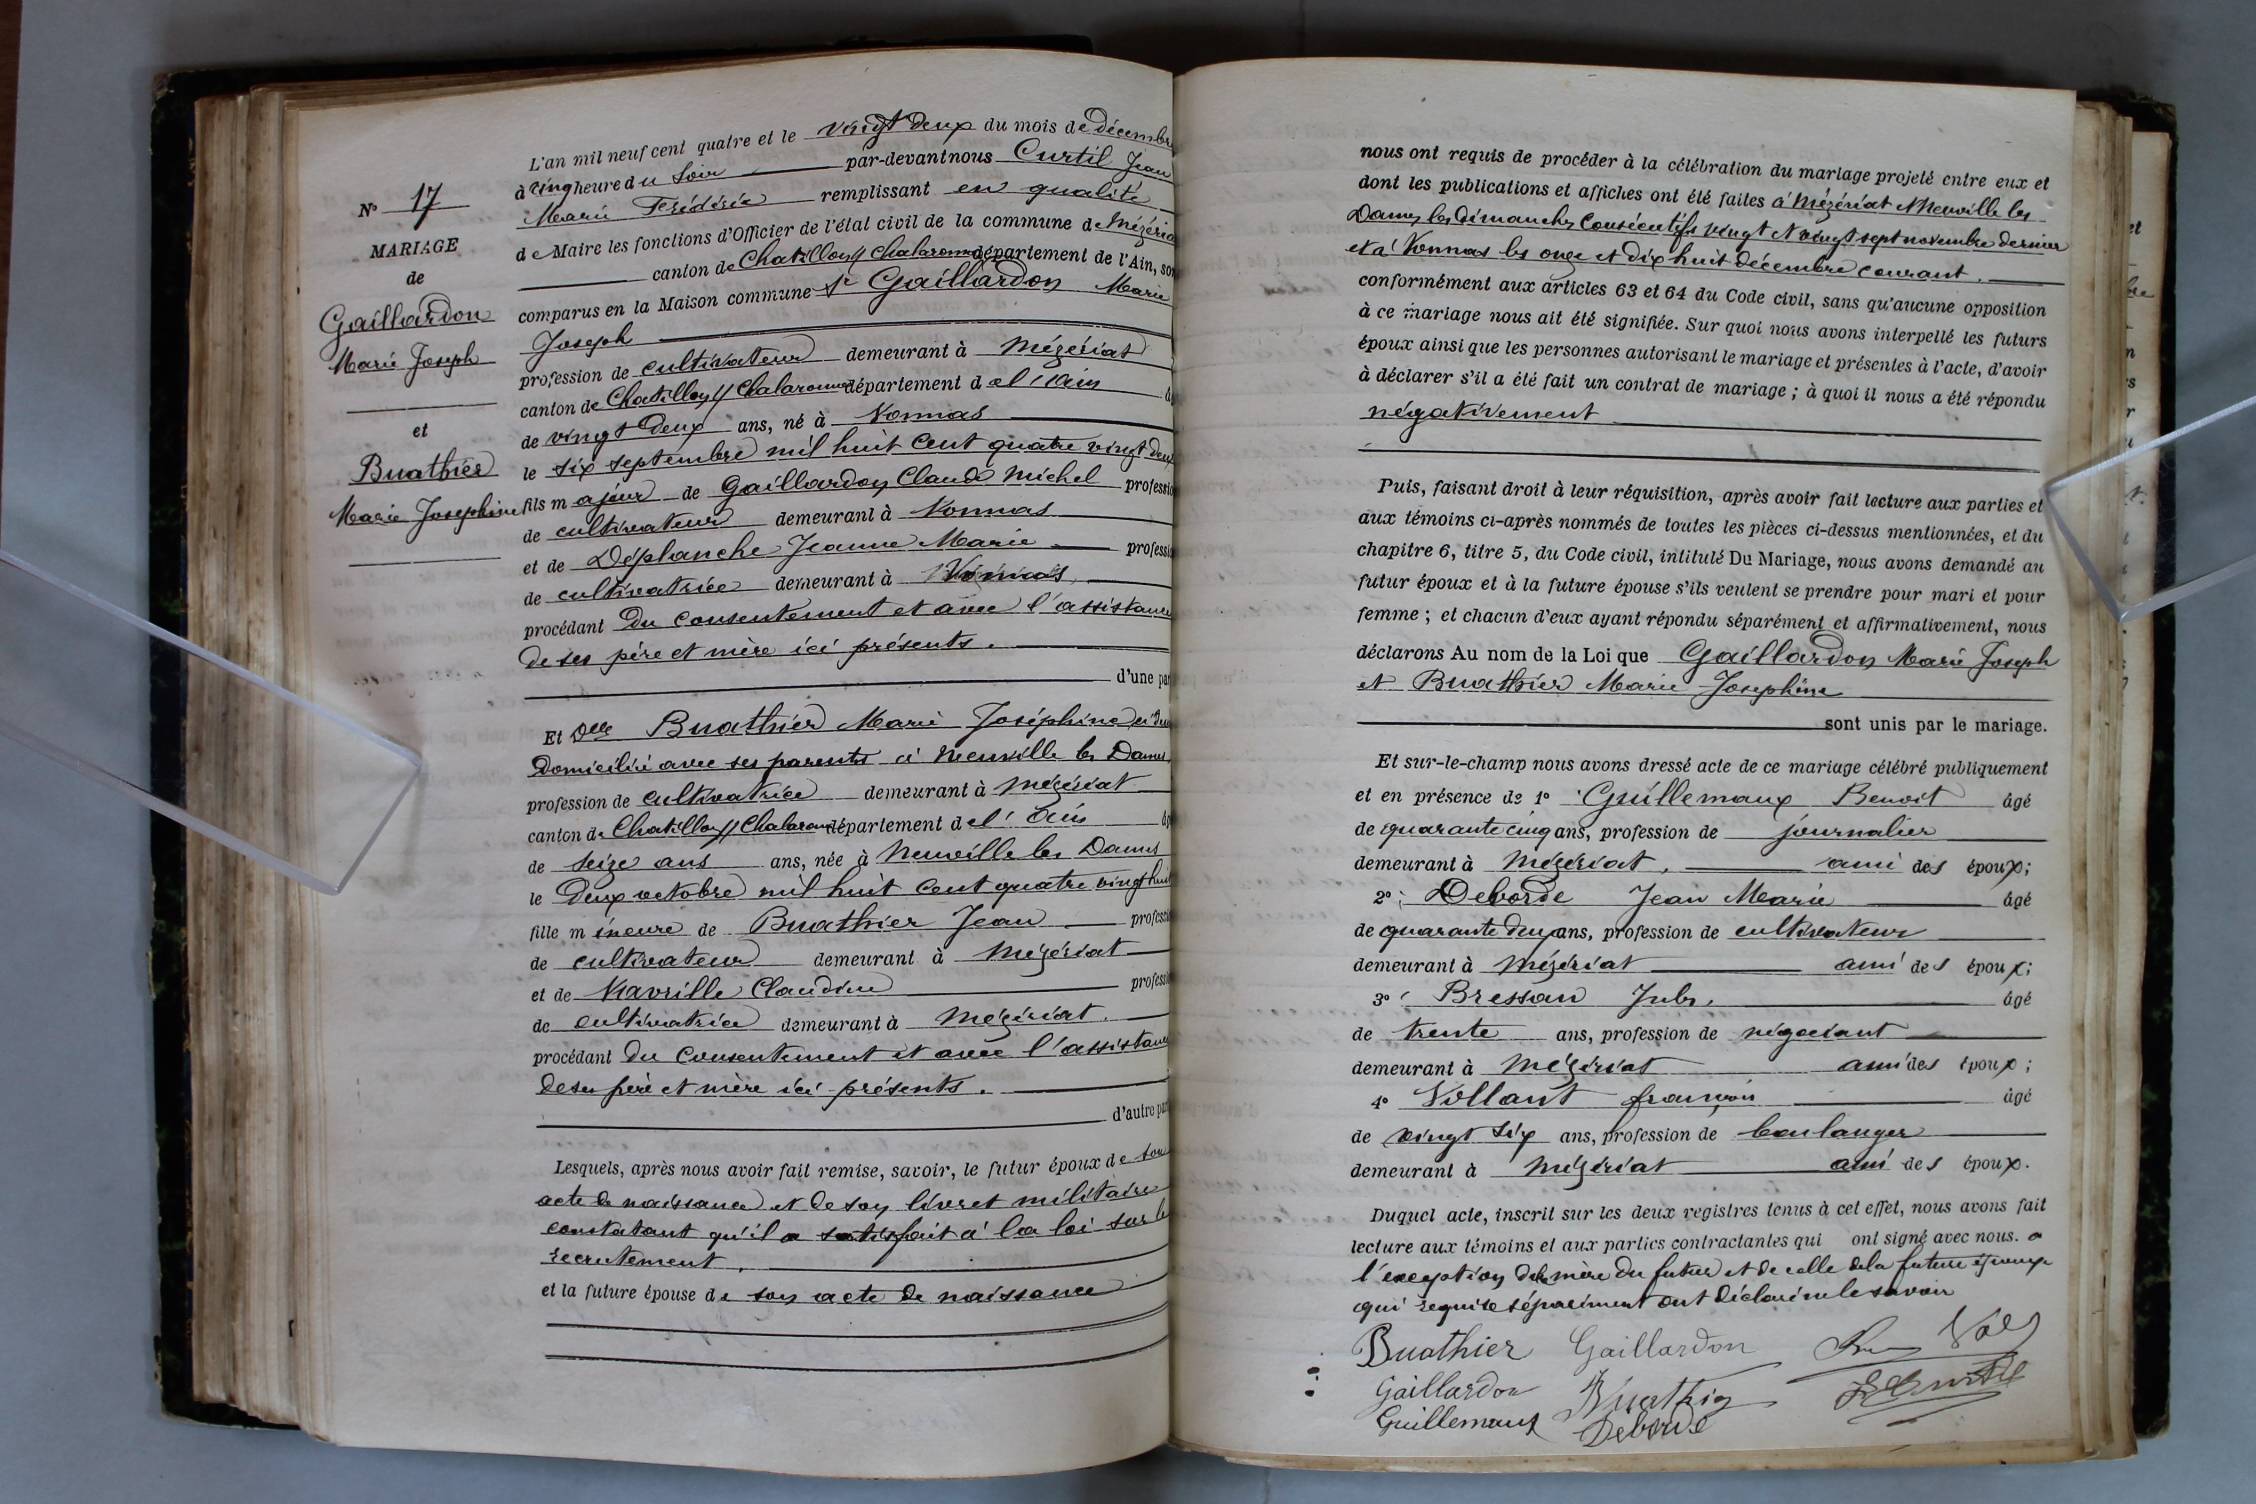 N° 17
MARIAGE
de
Gaillardon
Marie Joseph
et
Buathier
Marie Joséphine
L'an mil neuf cent quatre et le vingt deux du mois de décembre
à cinq heure du soir par-devant nous Curtil Jean
Marie Frédéric remplissant en qualité
de Maire les fonctions d'Officier de l'état civil de la commune de Mézéria
canton de Chatillon s/ Chalaronne département de l'Ain, son
comparus en la Maison commune Sr Gaillardon Marie
Joseph
profession de cultivateur demeurant à Mézériat
canton de Chatillon s/ Chalaronne département de l'Ain
de vingt deux ans, né à Vonnas
le six septembre mil huit cent quatre vingt deux
fils majeur de Gaillardon Claude Michel professio
de cultivateur demeurant à Vonnas
et de Déplanche Jeanne Marie professi
de cultivatrice demeurant à Vonnas
procédant du consentement et avec l'assistance
de ses père et mère ici présents.
d'une par
Et Delle Buathier Marie Joséphine
domiciliée avec ses parents à Neuville les Dames
profession de cultivatrice demeurant à Mézériat
canton de Chatillon s/ Chalaronne département de l'Ain
de seize ans ans, née à Neuville les Dames
le deux octobre mil huit cent quatre vingt huit
fille mineure de Buathier Jean professi
de cultivateur demeurant à Mézériat
et de Viavrille Claudine professi
de cultivatrice demeurant à Mézériat.
procédant du consentement et avec l'assistance
de ses père et mère ici présents.
d'autre par
Lesquels, après nous avoir fait remise, savoir, le futur époux de son
acte de naissance et de son livret militaire
constatant qu'il a satisfait à la loi sur le
recrutement.
et la future épouse de son acte de naissance
nous ont requis de procéder à la célébration du mariage projeté entre eux et
dont les publications et affiches ont été faites à Mézériat et Neuville les
Dames les dimanches consécutifs vingt et vingt sept novembre dernier
et à Vonnas les onze et dix huit décembre courant.
conformément aux articles 63 et 64 du Code civil, sans qu'aucune opposition
à ce mariage nous ait été signifiée. Sur quoi nous avons interpellé les futurs
époux ainsi que les personnes autorisant le mariage et présentes à l'acte, d'avoir
à déclarer s'il a été fait un contrat de mariage ; à quoi il nous a été répondu
négativement
Puis, faisant droit à leur réquisition, après avoir fait lecture aux parties et
aux témoins ci-après nommés de toutes les pièces ci-dessus mentionnées, et du
chapitre 6, titre 5, du Code civil, intitulé Du Mariage, nous avons demandé au
futur époux et à la future épouse s'ils veulent se prendre pour mari et pour
femme ; et chacun d'eux ayant répondu séparément et affirmativement, nous
déclarons Au nom de la Loi que Gaillardon Marie Joseph
et Buathier Marie Josephine
sont unis par le mariage.
Et sur-le-champ nous avons dressé acte de ce mariage célébré publiquement
et en présence de 1° Guillemaux Benoit âgé
de quarante cinq ans, profession de journalier
demeurant à Mézériat, ami des époux ;
2° Deborde Jean Marie âgé
de quarante deux ans, profession de cultivateur
demeurant à Mézériat ami des époux ;
3° Bressan Jules, âgé
de trente ans, profession de négociant
demeurant à Mézériat ami des époux ;
4° Vollant françois âgé
de vingt six ans, profession de boulanger
demeurant à Mézériat ami des époux.
Duquel acte, inscrit sur les deux registres tenus à cet effet, nous avons fait
lecture aux témoins et aux parties contractantes qui ont signé avec nous. a
l'exception de la mère du futur et de celle de la future épouse
qui requise séparément ont déclaré ne le savoir
Buathier Gaillardon
Gaillardon Buathier
Guillemaux Deborde